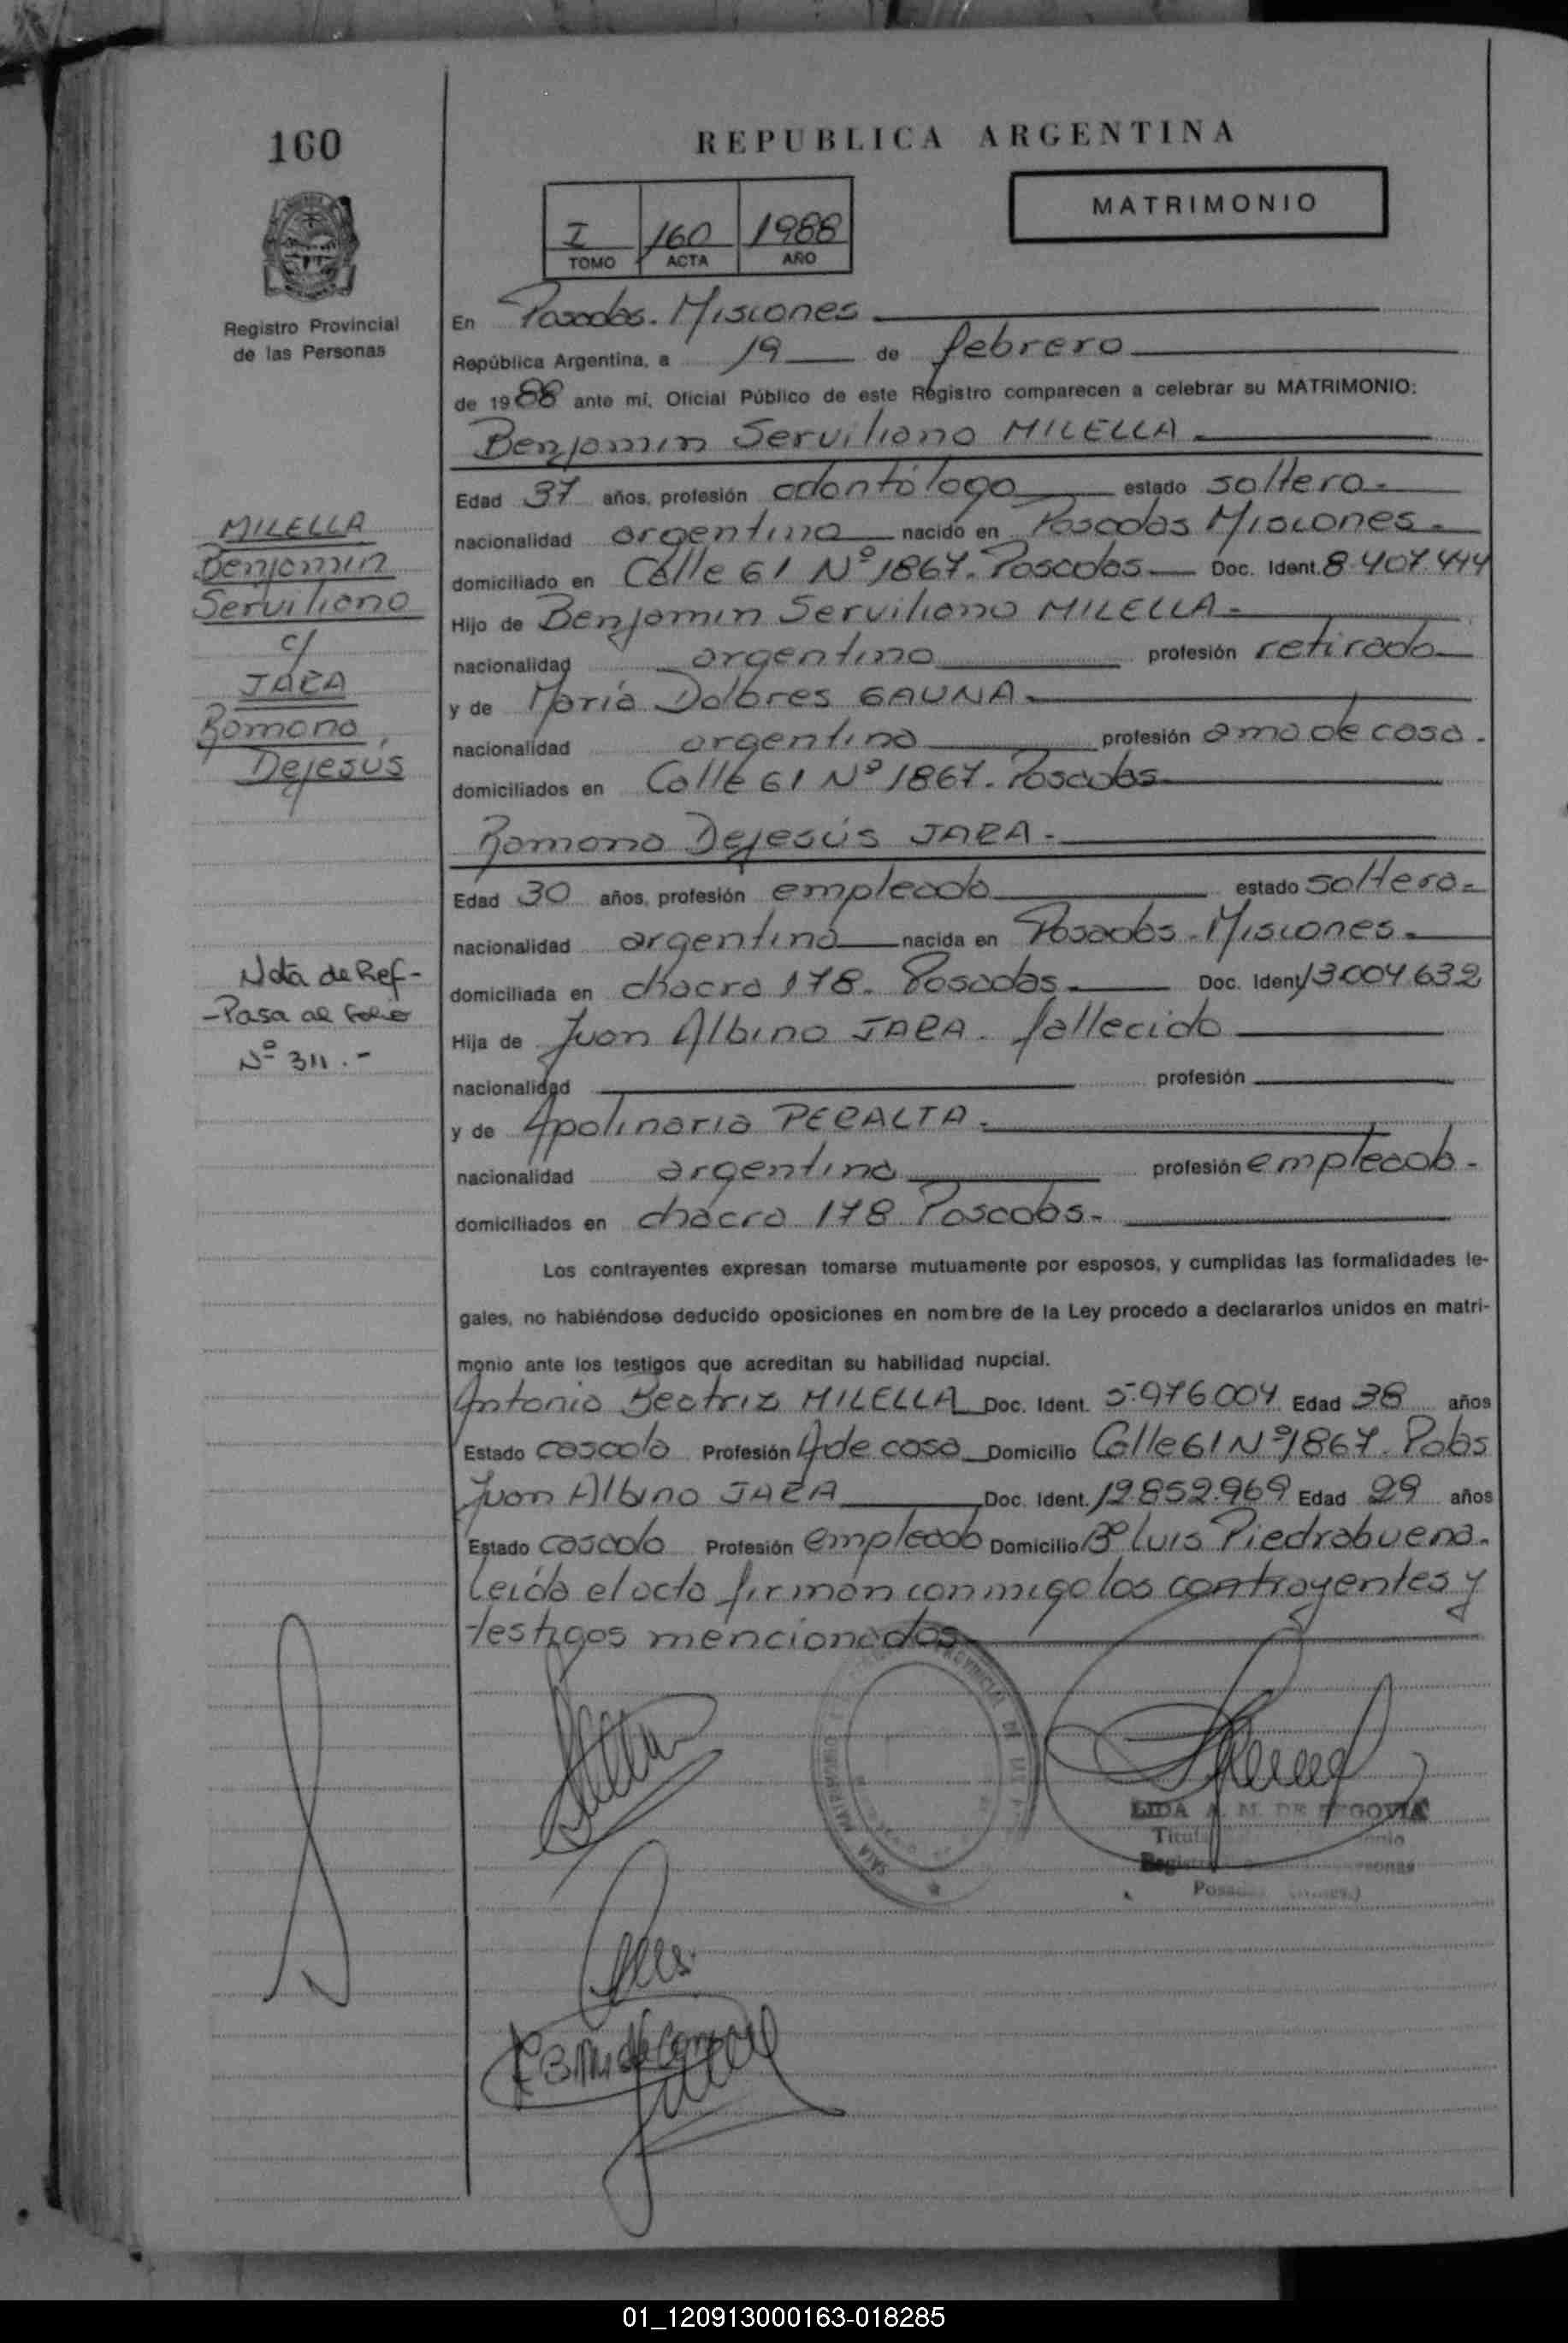 160
REPUBLICA ARGENTINA
MATRIMONIO
I 160 1988
TOMO ACTA AÑO
Registro Provincial
de las Personas
En Posadas. Misiones
República Argentina, a 19 de febrero
de 1988 ante mí, Oficial Público de este Registro comparecen a celebrar su MATRIMONIO:
Benjamin Serviliano MILELLA.
Edad 37 años, profesión odontólogo estado soltero.
nacionalidad argentina nacido en Posadas Misiones.
domiciliado en Calle 61 Nº 1867. Posadas Doc. Ident. 8.407.444
Hijo de Benjamin Serviliano MILELLA.
nacionalidad argentino profesión retirado
y de María Dolores GAUNA.
nacionalidad argentina profesión ama de casa.
domiciliados en Calle 61 Nº 1867. Posadas
Ramona Dejesús JARA.
Edad 30 años, profesión empleada estado soltera.
nacionalidad argentina nacida en Posadas - Misiones.
domiciliada en chacra 178. Posadas. Doc. Ident. 13.004.632
Hija de Juan Albino JARA. fallecido
nacionalidad profesión
y de Apolinaria PERALTA.
nacionalidad argentina profesión empleada.
domiciliados en chacra 178 Posadas.
Los contrayentes expresan tomarse mutuamente por esposos, y cumplidas las formalidades le-
gales, no habiéndose deducido oposiciones en nombre de la Ley procedo a declararlos unidos en matri-
monio ante los testigos que acreditan su habilidad nupcial.
Antonia Beatriz MILELLA Doc. Ident. 5.976.004 Edad 38 años
Estado casada Profesión A de casa Domicilio Calle 61 Nº 1867. Pdas
Juan Albino JARA Doc. Ident. 12.852.969 Edad 29 años
Estado casado Profesión empleado Domicilio Bº Luis Piedrabuena.
Leída el acta firman conmigo los contrayentes y
testigos mencionados
MILELLA
Benjamin
Serviliano
c/
JARA
Ramona
Dejesús
Nota de Ref-
-Pasa al folio
Nº 311.-
LIDA A. M. DE SEGOVIA
01_120913000163-018285